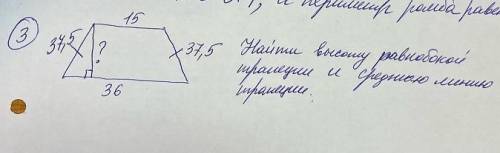 и периметр ромба раве
3
15
37,5
?
37,5
36
Найти высоту равнобокой
трапеции и среднюю линию
трапеции.